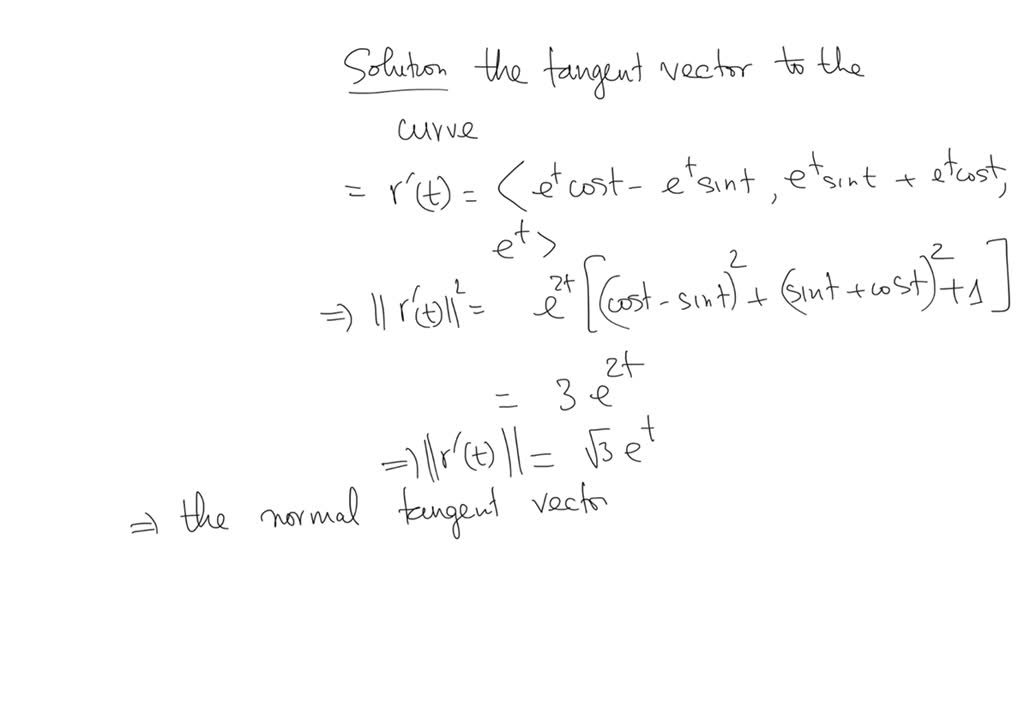 Solution the tangent vector to the
curve
= r'(t) = < e^t cost - e^t sint, e^t sint + e^t cost,
e^t >
⇒ ||r'(t)||^2 = e^2t [(cost - sint)^2 + (sint + cost)^2 + 1]
= 3 e^2t
⇒ ||r'(t)|| = √3 e^t
⇒ the normal tangent vector